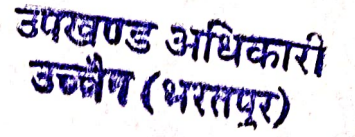 उपखण्ड अधिकारी
उच्चैन (भरतपुर)